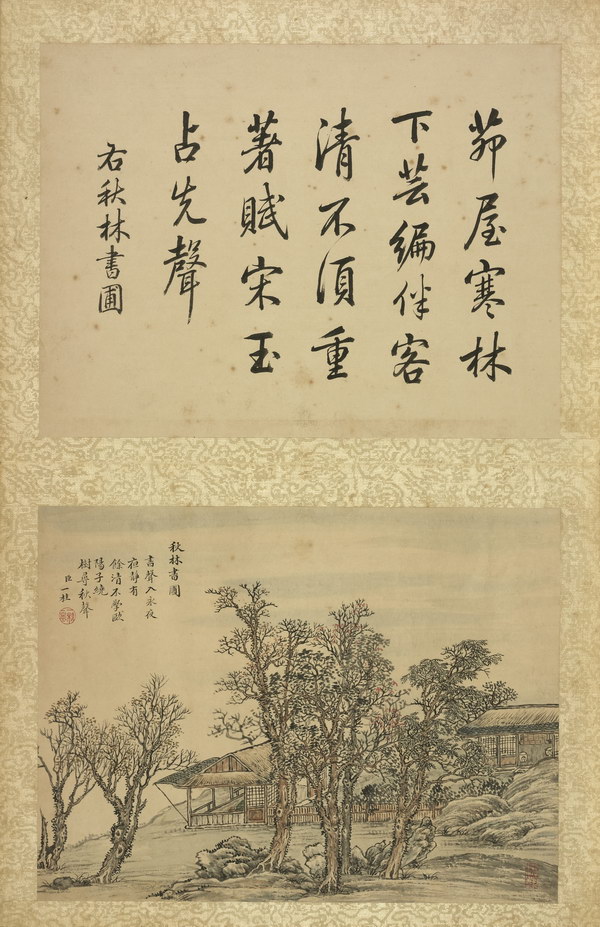 茆屋寒林
下芸編伴客
清不須重
著賦宋玉
占先聲
右秋林書圃
秋林書圃
書聲入永夜
靜有
餘清不學歐
陽子繞
樹尋秋聲
臣一桂